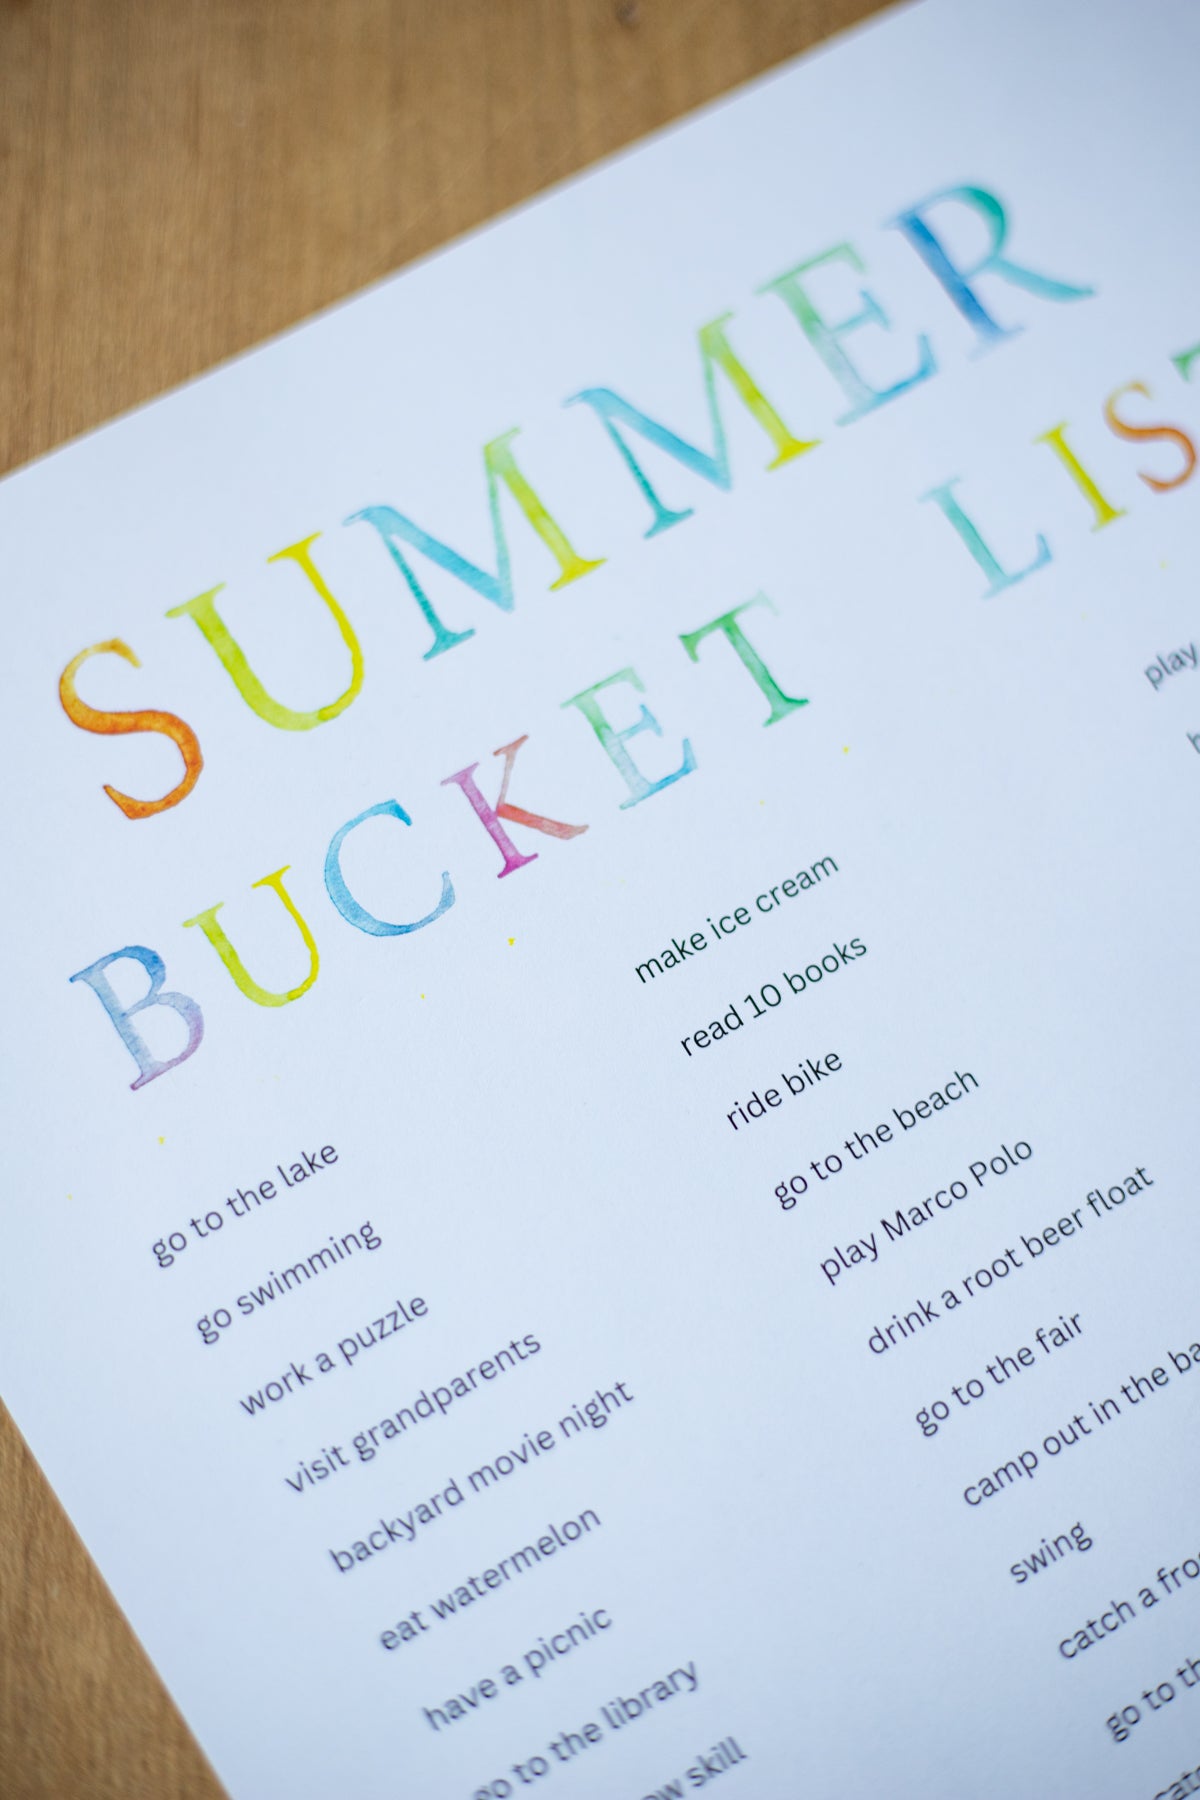 SUMMER
BUCKET LIST
go to the lake
go swimming
work a puzzle
visit grandparents
backyard movie night
eat watermelon
have a picnic
go to the library
skill
make ice cream
read 10 books
ride bike
go to the beach
play Marco Polo
drink a root beer float
go to the fair
camp out in the
swing
catch a
go to
play